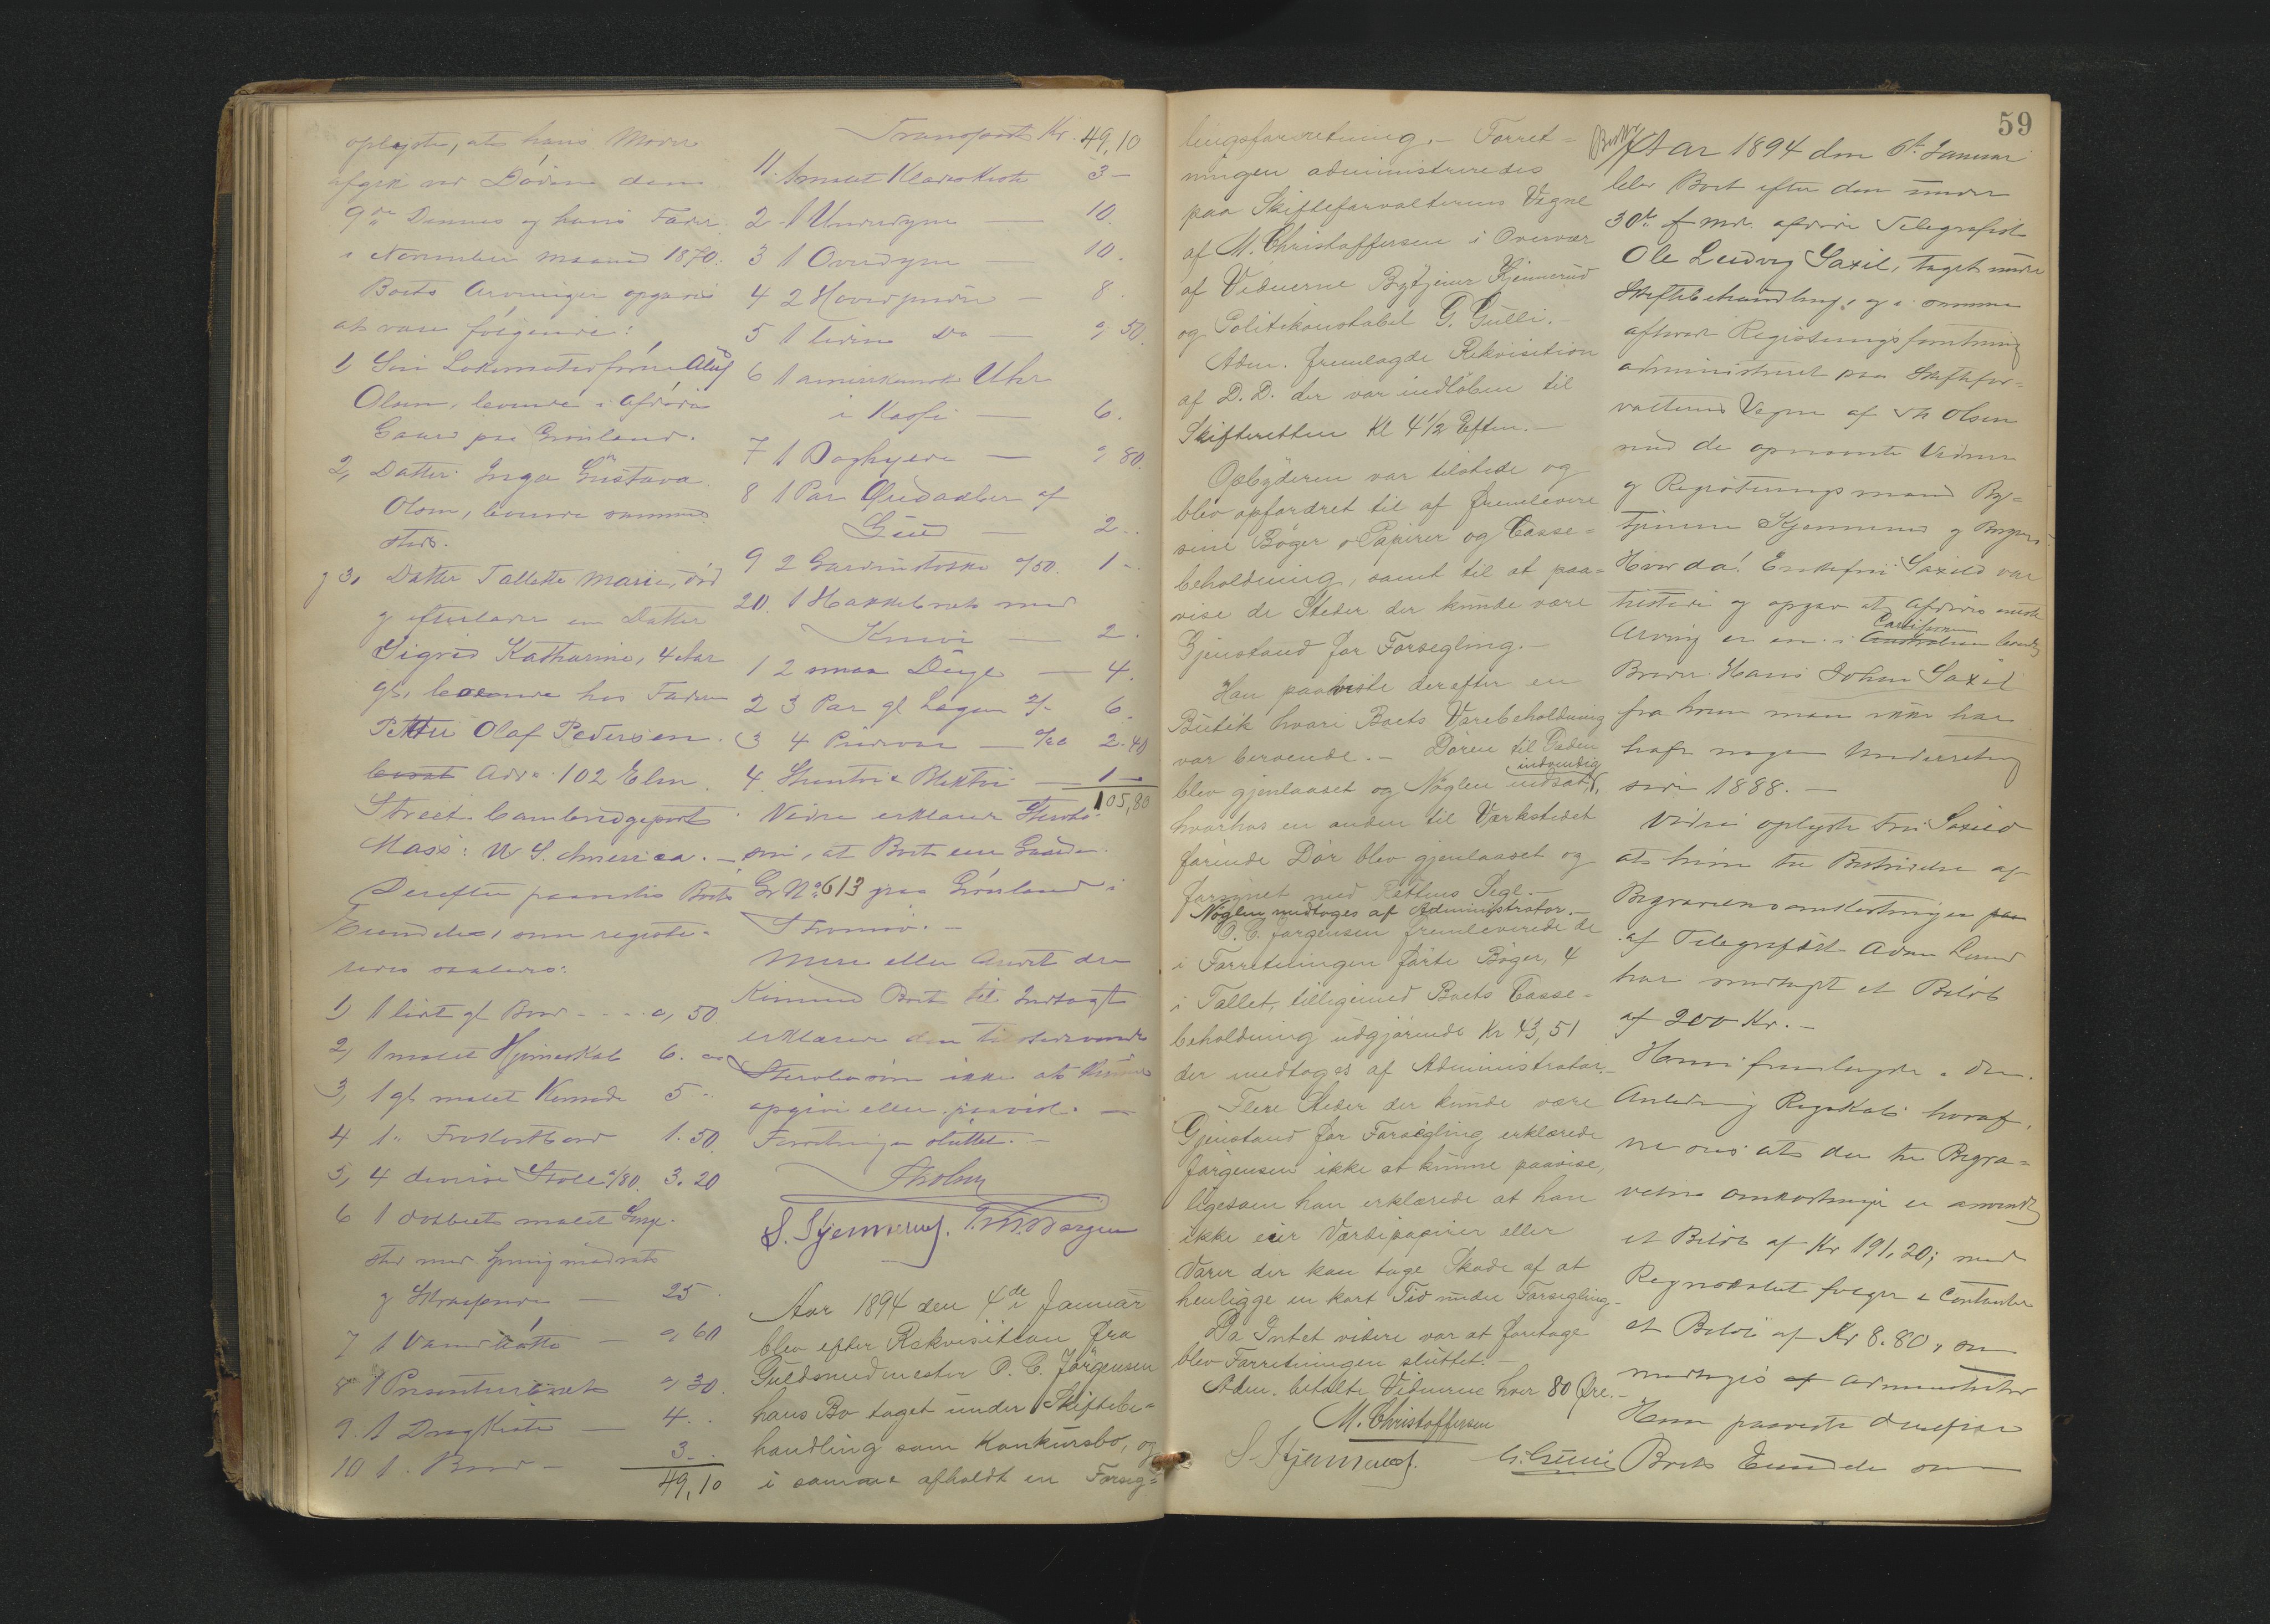 oplyste, at hans Moder
afgik ved Døden den
9de Dennes og hans Fader
i November Maaned 1870.
Boets Arvinger opgaves
at være følgende:
1) Søn Lokomotivfører Aluf
Olsen, boende i afdødes
Gaard paa Grønland.
2, Datter Inga Gustava
Olsen, boende sammesteds.
g 3, Datter Tallette Marie, død
og efterlader en Datter
Sigrid Katharine, 4 Aar
gl, boende hos Faderen
Petter Olaf Pedersen.
Adr: 102 Elm
Street. Cambridgeport
Mass: U. S. America. —
Derefter paavistes Boets
Eiendele, som registe-
redes saaledes:
1) 1 lidet gl Bord - - - 0,50
2, 1 malet Hjørneskab 6. -
3, 1 gl malet Komode 5 -
4 1 " Frokostbord 1.50
5, 4 diverse Stole a/80. 3.20
6 1 dobbelt malet Senge-
sted med
og — 25
7 1 Vandbøtte — 0,60
8 1 0,30.
9. 1 Dragkiste — 4. -
10 1. Bord — 3. -
49,10
Transport Kr. 49,10
11. 1 malet Klædeskiste 3 —
2 1 Underdyne — 10.
3 1 Overdyne — 10.
4 2 Hovedpuder — 8.
5 1 liden Do — 0,50.
6 1 amerikanske Uhr
i Kasse — 6.
7 1 — 0,80.
8 1 Par Øredobber af
Guld — 2 -
9 2 a/50. 1 -
20. 1 Hakkebræt med
Kniv — 2.
1 2 smaa Duge — 4.
2 3 Par gl Lagen 2/- 6.
3 4 Pudevar — a/60 2.40
4. — 1 —
105,80
Videre erklærer Sterbo-
søn, at Boet eier Gaarden
Gr No 613 paa Grønland i
Tromsø. —
Mere eller Andet der
Kunde Boet til Indtægt
erklærede den tilstedeværende
Sterbosøn ikke at kunne
opgive eller paavise. —
Forretningen sluttet. —
Th Olsen
S. Kjennerud.
Aar 1894 den 4de Januar
blev efter Rekvisition fra
Guldsmedmester O. C. Jørgensen
hans Bo taget under Skiftebe-
handling som Konkursbo, og
i samme afholdt en Forseg-
59
lingsforretning. — Forret-
ningen administreredes
paa Skifteforvalterens Vegne
af M. Christoffersen i Overvær
af Vidnerne Bytjener Kjennerud
og Politikonstabel G. Gulli. —
Adm. fremlagde Rekvisition
af D. D. der var indløben til
Skifteretten Kl 4 1/2 Eftm. —
Opbyderen var tilstede og
blev opfordret til at fremlevere
sine Bøger, Papirer og Casse-
beholdning, samt til at paa-
vise de Steder der kunde være
Gjenstand for Forsegling. —
Han paaviste derefter en
Butik hvori Boets Varebeholdning
var beroende. — Døren til Gaden
indvendig
blev gjenlaaset og Nøglen indsat,
hvorhos en anden til Værkstedet
førende Dør blev gjenlaaset og
forsynet med Rettens Segl. —
Nøglen medtoges af Administrator. —
O. C. Jørgensen fremleverede de
i Forretningen førte Bøger, 4
i Tallet, tilligemed Boets Casse-
beholdning udgjørende Kr 43,51
der medtoges af Administrator. —
Flere Steder der kunde være
Gjenstand for Forsegling erklærede
Jørgensen ikke at kunne paavise,
ligesom han erklærede at han
ikke eier Værdipapirer eller
Varer der kan tage Skade af at
henligge en kort Tid under Forsegling. —
Da Intet videre var at foretage
blev Forretningen sluttet. —
Adm. betalte Vidnerne hver 80 Øre. —
M. Christoffersen
S. Kjennerud. G. Gulli
Aar 1894 den 6te Januar
blev Boet efter den under
30te f Md. afdøde Telegrafist
Ole Ludvig Saxil, taget under
Skiftebehandling, og i samme
afholdt Registreringsforretning
administreret paa Skiftefor-
valterens Vegne af Th Olsen
med de opnævnte Vidner
og Registreringsmænd By-
tjener Kjennerud og Borgen
Hvorda! Enkefru Saxild var
tilstede og opgav at Afdødes eneste
Californien
Arving er en i Australien boende
Broder Hans Johan Saxil
fra hvem man ikke har
havt nogen Underretning
siden 1888. —
Videre oplyste Fru Saxild
at hun til Bestridelse af
Begravelsesomkostninger paa
af Telegrafist Adam Lund
har modtaget et Beløb
af 200 Kr. —
Hun fremlagde i den
Anledning Regnskab hvoraf
sees at der til Begra-
velses omkostninger er anvendt
et Beløb af Kr 191,20; med
Regnskabet følger i Contanter
et Beløb af Kr 8.80, som
modtoges af Administrator
Hun paaviste derefter
Boets Eiendele som